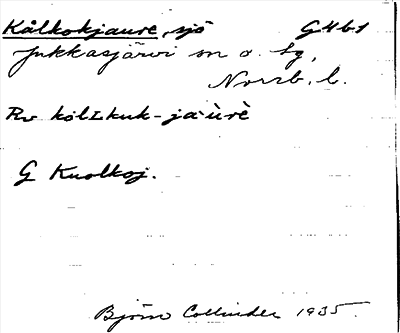 Kålkokjaure, sjö G4b1
Jukkasjärvi sn o. tg,
Norrb. l.
Rv kölɪkuk-jaùrè
G Kuolkoj.
Björn Collinder 1935.